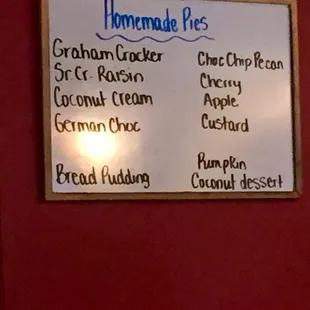 Homemade Pies
Graham Crocker
Sr. Cr. Raisin
Coconut Cream
German Choc
Bread Pudding
Choc Chip Pecan
Cherry
Apple
Custard
Pumpkin
Coconut dessert